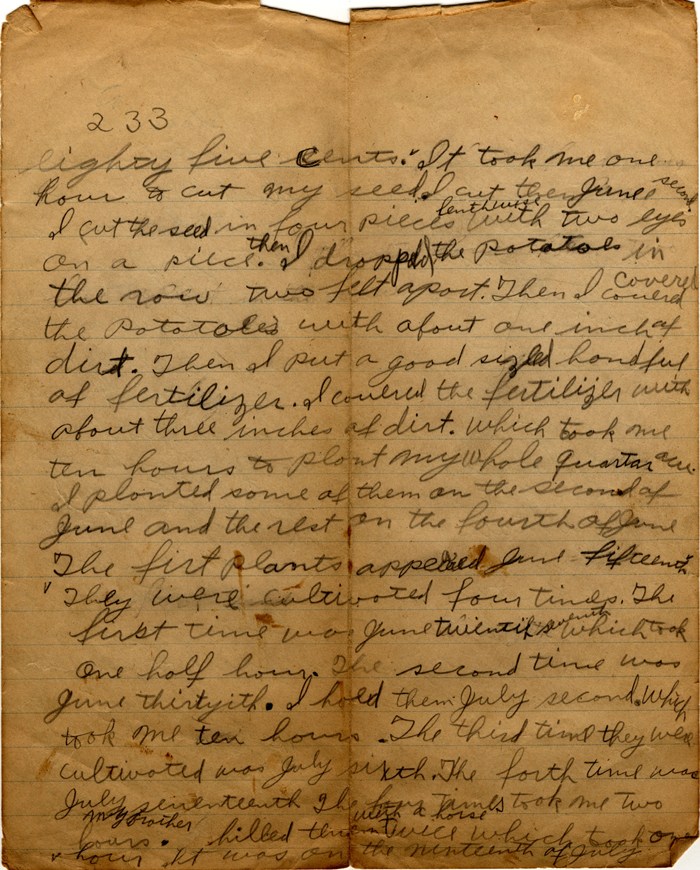 233
eighty five cents. It took me one
hour to cut my seed I cut them June second
I cut the seed in four pieces lenthwise with two eyes
on a piece. then I dropped the potatoes in
the row two feet apart. Then I covered covered
the potatoes with about one inch of
dirt. Then I put a good sized handful
of fertilizer. I covered the fertilizer with
about three inches of dirt. Which took me
ten hours to plant my whole quartar acre.
I planted some of them on the second of
June and the rest on the fourth of June
The first plants appeared June fifteenth
They were cultivated four times. The
first time was June which took
one half hour. The second time was
June thirtyith. I hoed them July second. Which
took me ten hours. The third time they were
cultivated was July sixth. The forth time was
July seventeenth The four times took me two
hours. my brother hilled them with a horse twice which took one
hour. It was on the ninteenth of July